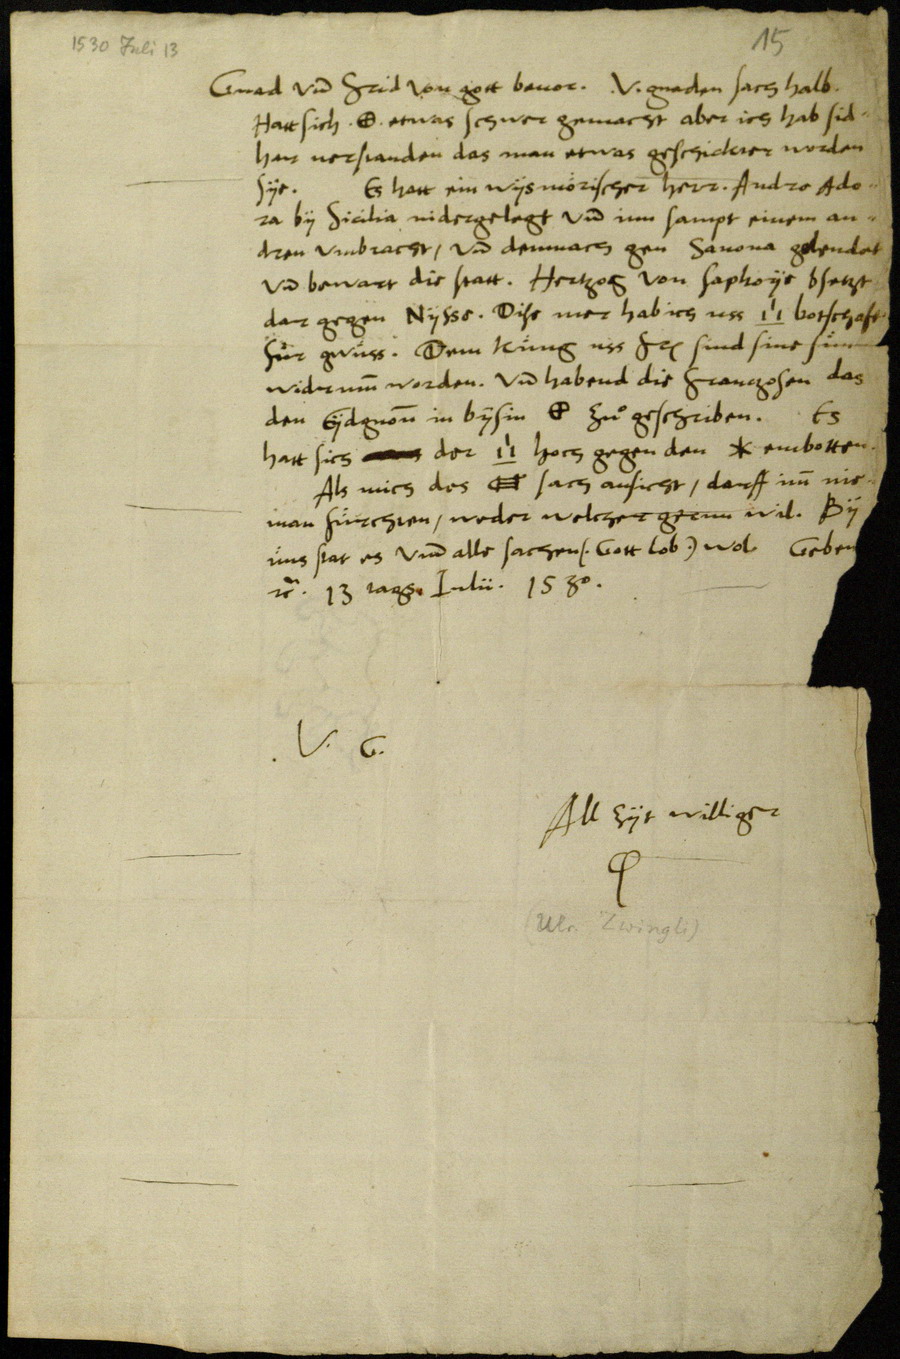 1530 Juli 13
15
Gnad vnd Frid von gott beuor. V. gnaden sach halb.
Hatt sich . ⊕ . etwas schwer gemacht aber ich hab sid-
har verstanden das man etwas geschickter worden
sye. Es hatt ein wysmörischer herr. Andre Ado-
ra by Sicilia nidergelegt vnd inn sampt einem an-
dren vmbracht / vnd demnach gen Sauona gelendet
vnd bewart die statt. Hertzog von saphoye bsetzt
dar gegen Nysse. Dise mer hab ich uss botschafft
für gwüss. Dem Küng uss Frx sind sine sün
widrumm worden. Vnd habend die Frantzosen das
den Eydgnon in bysin ⊕ zů geschriben. Es
hatt sich der hoch gegen den * embotten.
Als mich des sach ansicht / darff im nie-
man fürchten / weder welcher gernn wil. By
üns stat es vmm alle sachen (. Gott lob .) wol. Geben
13 tags Iulii. 1530.
V. G.
All zyt williger
(Ulr. Zwingli)